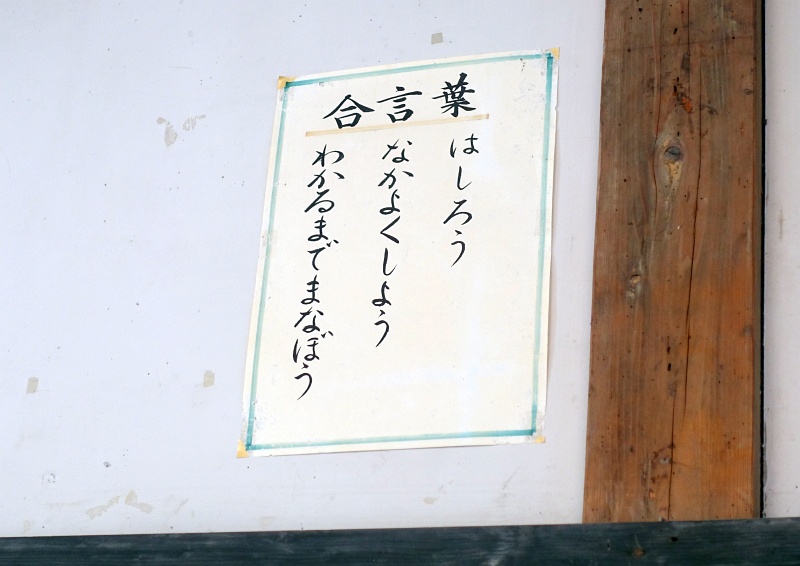 合言葉
はしろう
なかよくしよう
わかるまでまなぼう